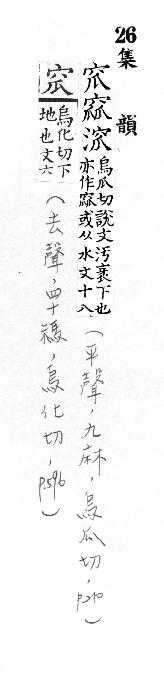 26
集韻
窊窳溛烏瓜切說文汚衺下也
亦作窳或从水文十八
(平聲,九麻,烏瓜切,p.210)
窊烏化切下
地也文六
(去聲,四十禡,烏化切,p.596)